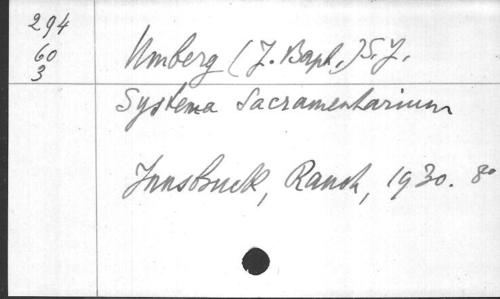 294
60
3
Umberg (J. Bapt.) S.J.
Systema Sacramentarium
Innsbruck, Rauch, 1930. 8º